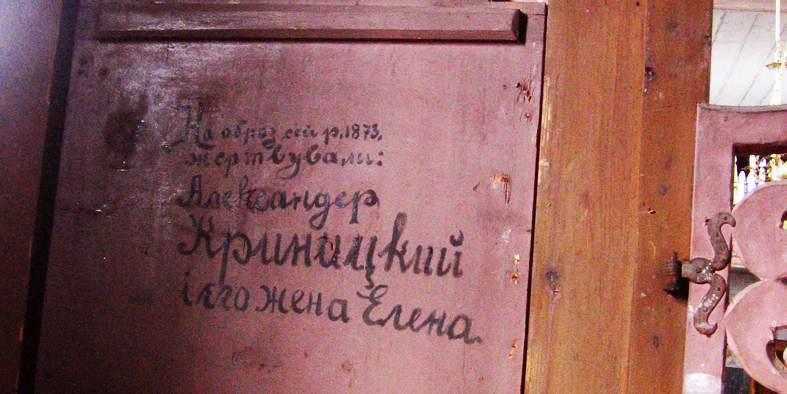 На образ сей р. 1873,
жертвували:
Александер
Криницкий
і его жена Елена